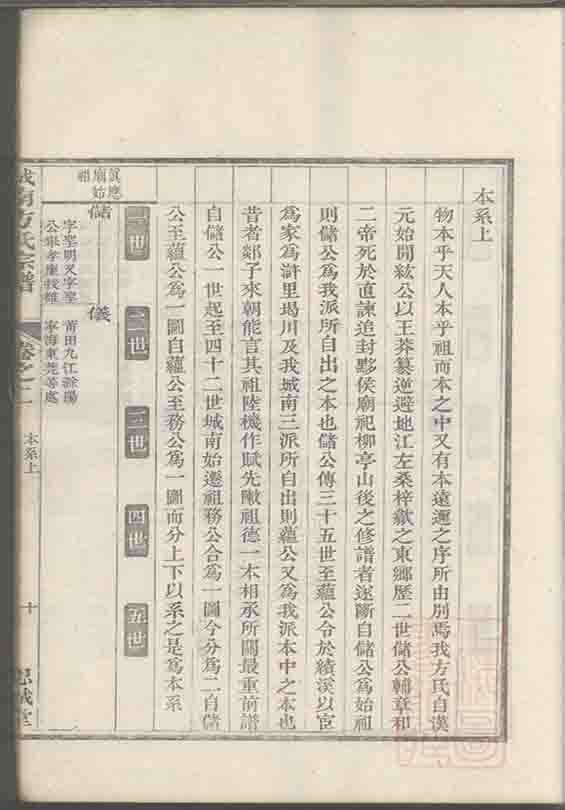 本系上
物本乎天人本乎祖而本之中又有本遠邇之序所由別焉我方氏自漢
元始開紘公以王莽篡逆避地江左桑梓歙之東鄉歷二世儲公輔章和
二帝死於直諫追封黟侯廟祀柳亭山後之修譜者遂斷自儲公爲始祖
則儲公爲我派所自出之本也儲公傳三十五世至蘊公令於績溪以宦
爲家爲滸里堨川及我城南三派所自出則蘊公又爲我派本中之本也
昔者郯子來朝能言其祖陸機作賦先陳祖德一本相承所關最重前譜
自儲公一世起至四十二世城南始遷祖務公合爲一圖今分爲二自儲
公至蘊公爲一圖自蘊公至務公爲一圖而分上下以系之是爲本系
一世 二世 三世 四世 五世
眞應
廟始
祖
儲 儀
字聖明又字聖
公舉孝廉授雄
莆田九江滁陽
寧海東莞等處
城南方氏宗譜 卷之二 本系上 十 思誠堂